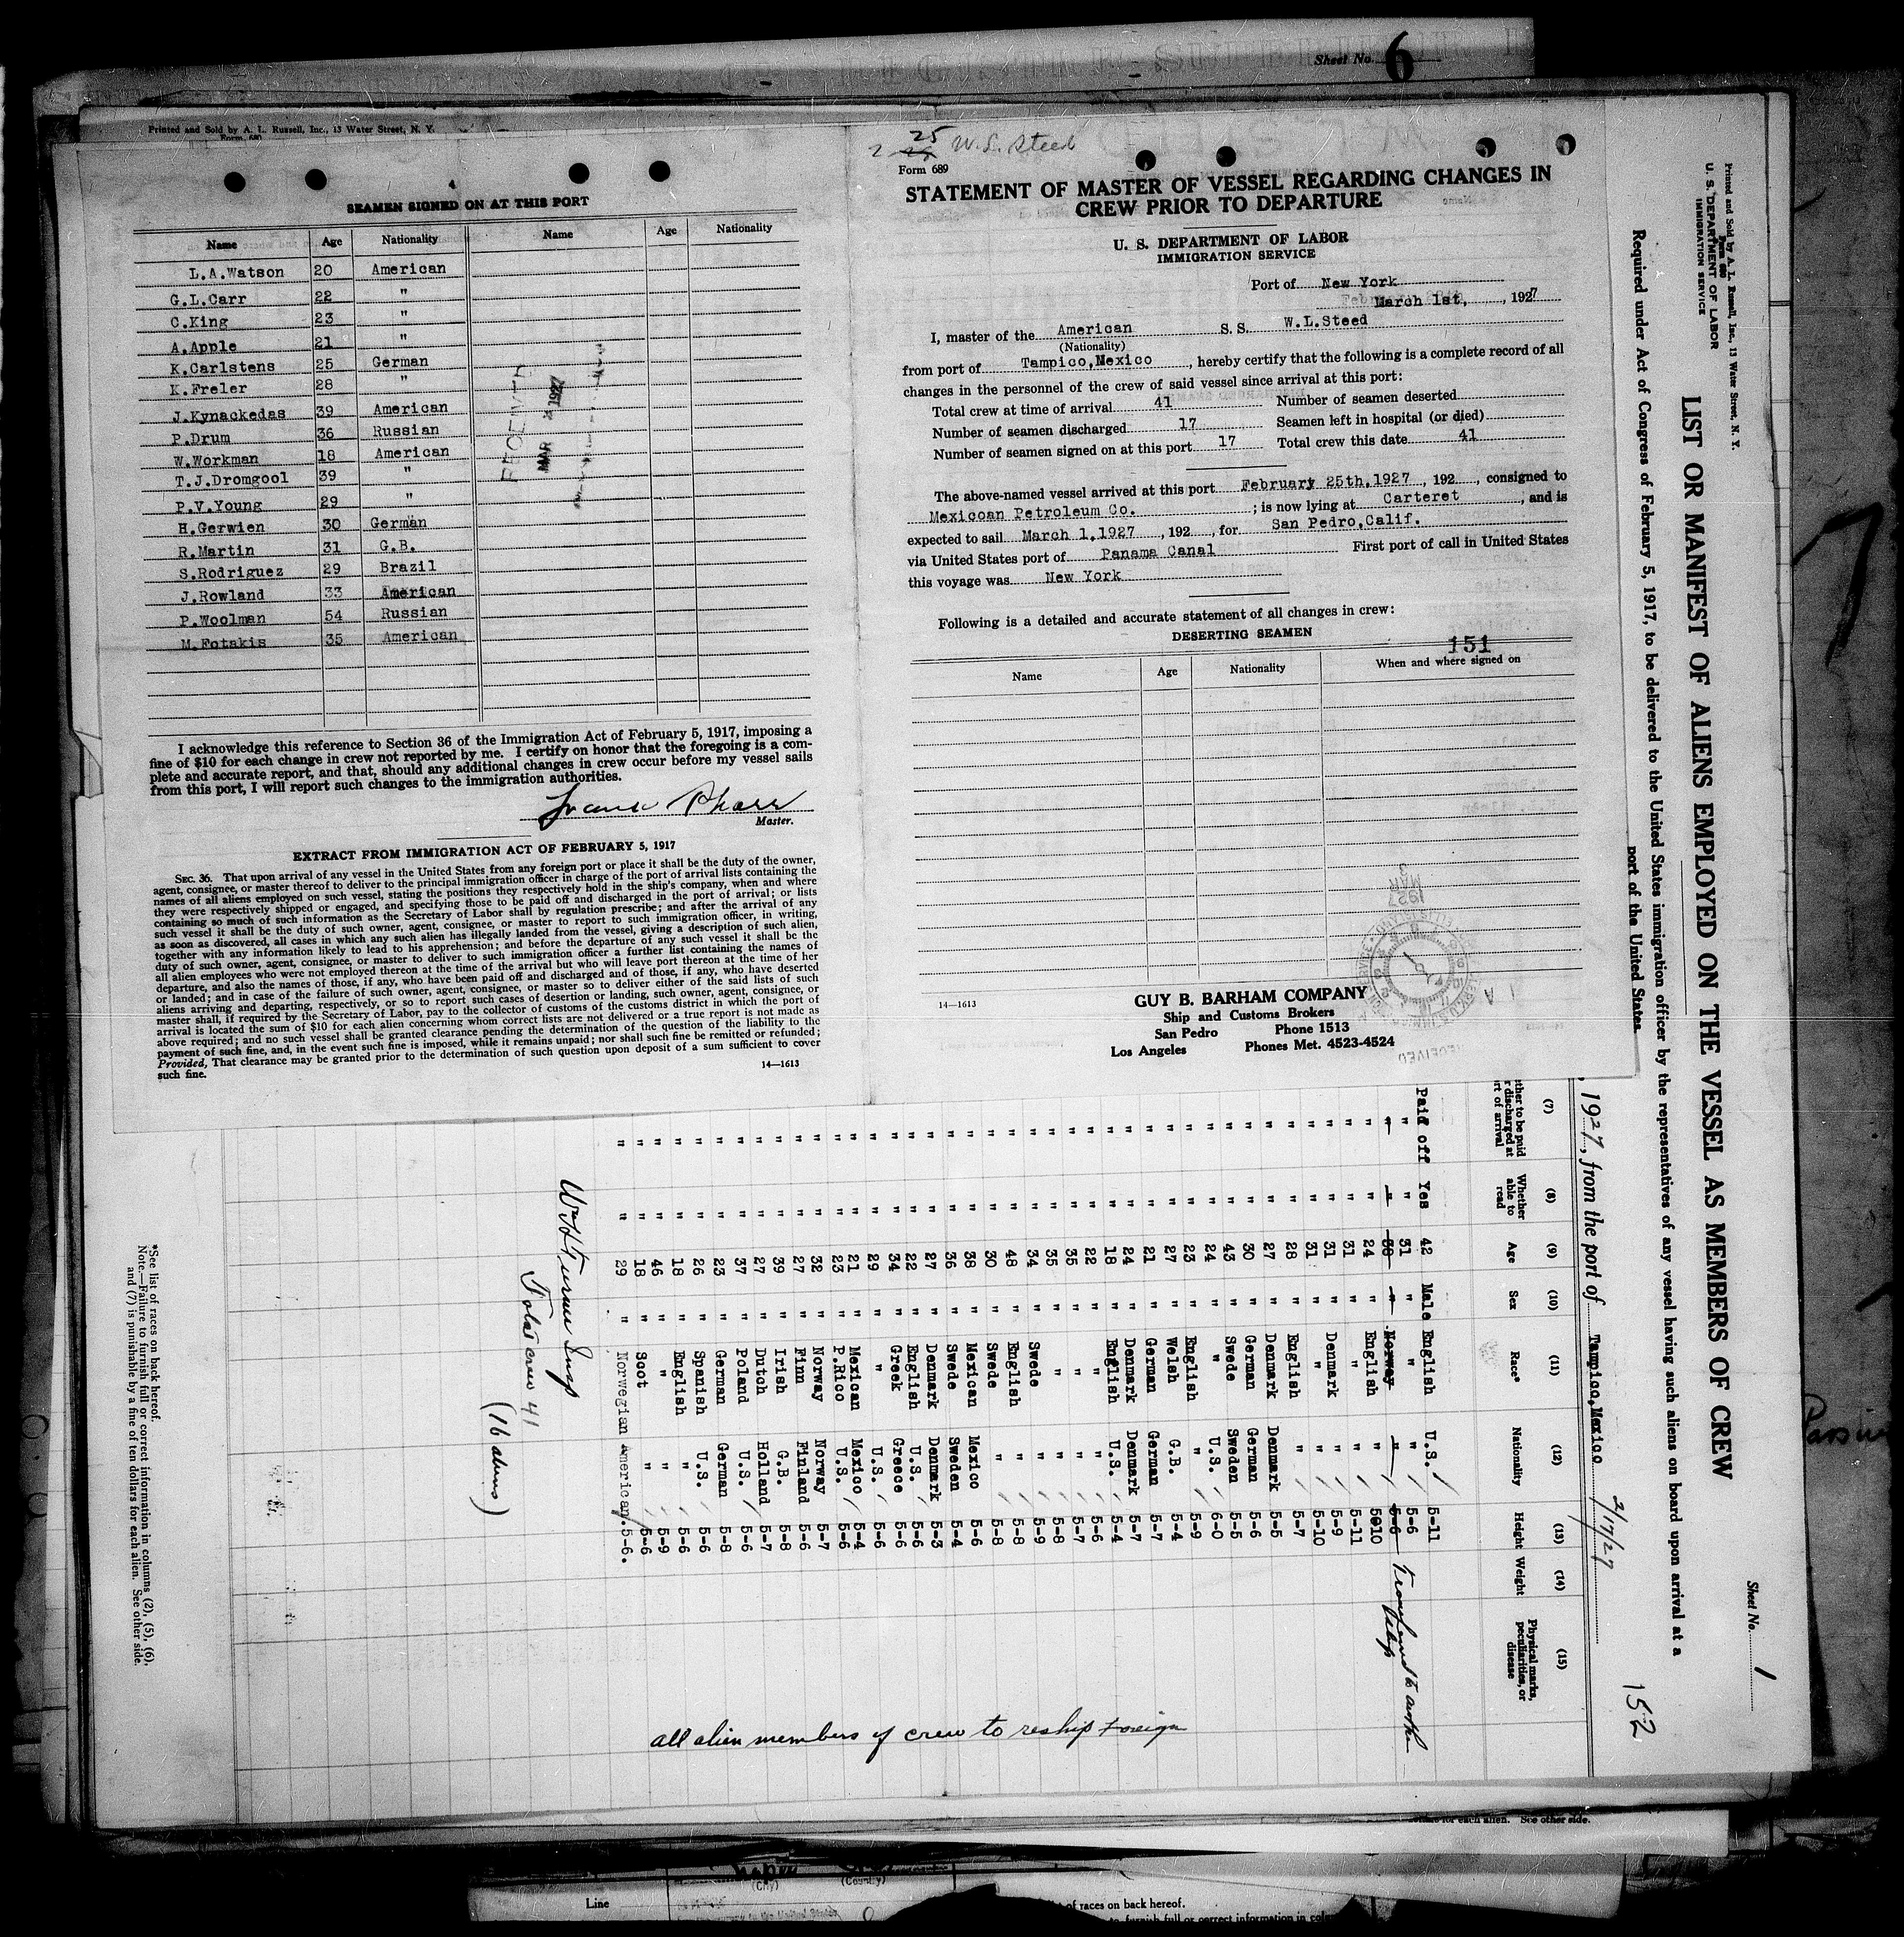 Sheet No. 6
Printed and Sold by A. L. Russell, Inc., 13 Water Street, N. Y.
Form 680
SEAMEN SIGNED ON AT THIS PORT
Name Age Nationality Name Age Nationality
L.A.Watson 20 American
G.L.Carr 22 "
C.King 23 "
A.Apple 21 "
K.Carlstens 25 German
K.Freler 28 "
J.Kynackedas 39 American
P.Drum 36 Russian
W.Workman 18 American
T.J.Dromgool 39 "
P.V.Young 29 "
H.Gerwien 30 German
R.Martin 31 G.B.
S.Rodriguez 29 Brazil
J.Rowland 33 American
P.Woolman 54 Russian
M.Fotakis 35 American
MAR 1927
I acknowledge this reference to Section 36 of the Immigration Act of February 5, 1917, imposing a
fine of $10 for each change in crew not reported by me. I certify on honor that the foregoing is a com-
plete and accurate report, and that, should any additional changes in crew occur before my vessel sails
from this port, I will report such changes to the immigration authorities.
Master.
EXTRACT FROM IMMIGRATION ACT OF FEBRUARY 5, 1917
SEC. 36. That upon arrival of any vessel in the United States from any foreign port or place it shall be the duty of the owner,
agent, consignee, or master thereof to deliver to the principal immigration officer in charge of the port of arrival lists containing the
names of all aliens employed on such vessel, stating the positions they respectively hold in the ship's company, when and where
they were respectively shipped or engaged, and specifying those to be paid off and discharged in the port of arrival; or lists
containing so much of such information as the Secretary of Labor shall by regulation prescribe; and after the arrival of any
such vessel it shall be the duty of such owner, agent, consignee, or master to report to such immigration officer, in writing,
as soon as discovered, all cases in which any such alien has illegally landed from the vessel, giving a description of such alien,
together with any information likely to lead to his apprehension; and before the departure of any such vessel it shall be the
duty of such owner, agent, consignee, or master to deliver to such immigration officer a further list containing the names of
all alien employees who were not employed thereon at the time of the arrival but who will leave port thereon at the time of her
departure, and also the names of those, if any, who have been paid off and discharged and of those, if any, who have deserted
or landed; and in case of the failure of such owner, agent, consignee, or master so to deliver either of the said lists of such
aliens arriving and departing, respectively, or so to report such cases of desertion or landing, such owner, agent, consignee, or
master shall, if required by the Secretary of Labor, pay to the collector of customs of the customs district in which the port of
arrival is located the sum of $10 for each alien concerning whom correct lists are not delivered or a true report is not made as
above required; and no such vessel shall be granted clearance pending the determination of the question of the liability to the
payment of such fine, and, in the event such fine is imposed, while it remains unpaid; nor shall such fine be remitted or refunded;
Provided, That clearance may be granted prior to the determination of such question upon deposit of a sum sufficient to cover
such fine.
14—1613
2 25 W. L. Steed
Form 689
STATEMENT OF MASTER OF VESSEL REGARDING CHANGES IN
CREW PRIOR TO DEPARTURE
U. S. DEPARTMENT OF LABOR
IMMIGRATION SERVICE
Port of New York
March 1st, , 1927
I, master of the American S. S. W.L.Steed
(Nationality)
from port of Tampico,Mexico , hereby certify that the following is a complete record of all
changes in the personnel of the crew of said vessel since arrival at this port:
Total crew at time of arrival 41 Number of seamen deserted
Number of seamen discharged 17 Seamen left in hospital (or died)
Number of seamen signed on at this port 17 Total crew this date 41
The above-named vessel arrived at this port February 25th,1927 , 192 , consigned to
Mexicoan Petroleum Co. ; is now lying at Carteret , and is
expected to sail March 1,1927 , 192 , for San Pedro,Calif.
via United States port of Panama Canal First port of call in United States
this voyage was New York
Following is a detailed and accurate statement of all changes in crew:
DESERTING SEAMEN
151
Name Age Nationality When and where signed on
MAR 3 1927
RECEIVED
14—1613
GUY B. BARHAM COMPANY
Ship and Customs Brokers
San Pedro Phone 1513
Los Angeles Phones Met. 4523-4524
Printed and Sold by A. L. Russell, Inc., 13 Water Street, N. Y.
Form 680
U. S. DEPARTMENT OF LABOR
IMMIGRATION SERVICE
Sheet No. 1
LIST OR MANIFEST OF ALIENS EMPLOYED ON THE VESSEL AS MEMBERS OF CREW
Required under Act of Congress of February 5, 1917, to be delivered to the United States immigration officer by the representatives of any vessel having such aliens on board upon arrival at a
port of the United States.
152
, 1927, from the port of Tampico,Mexico 2/17/27
(7) (8) (9) (10) (11) (12) (13) (14) (15)
ther to be paid r discharged at rt of arrival Whether able to read Age Sex Race* Nationality Height Weight Physical marks, peculiarities, or disease
Paid off Yes 42 Male English U.S. 5-11
" " 31 " " " 5-6
" " 30 " Norway " 5-6 Transferred to another ship
" " 24 " English " 5010
" " 31 " " " 5-11
" " 31 " Denmark " 5-9
" " 31 " " " 5-10
" " 28 " English " 5-7
" " 27 " Denmark Denmark 5-5
" " 30 " German German 5-6
" " 43 " Swede Sweden 5-5
" " 24 " " U.S. 6-0
" " 23 " English " 5-9
" " 27 " Welsh G.B. 5-4
" " 21 " German German 5-7
" " 24 " Denmark Denmark 5-7
" " 18 " English U.S. 5-4
" " 22 " " " 5-6
" " 35 " " " 5-7
" " 35 " " " 5-8
" " 34 " Swede " 5-9
" " 48 " English " 5-8
" " 30 " Swede " 5-8
" " 38 " Mexican Mexico 5-6
" " 36 " Swede Sweden 5-4
" " 27 " Denmark Denmark 5-3
" " 22 " English U.S. 5-6
" " 34 " Greek Greece 5-6
" " 29 " " U.S. 5-6
" " 21 " Mexican Mexico 5-4
" " 23 " P.Rico U.S. 5-6
" " 32 " Norway Norway 5-7
" " 27 " Finn Finland 5-6
" " 39 " Irish G.B. 5-8
" " 27 " Dutch Holland 5-7
" " 37 " Poland U.S. 5-6
" " 23 " German German 5-8
" " 26 " Spanish U.S. 5-6
" " 18 " English " 5-6
" " 46 " " " 5-9
" " 18 " Scot " 5-6
" " 29 " Norwegian American. 5-6.
Total crew 41
(16 aliens)
all alien members of crew to reship foreign
*See list of races on back hereof.
Note.—Failure to furnish full or correct information in columns (2), (5), (6),
and (7) is punishable by a fine of ten dollars for each alien. See other side.
for each alien. See other side.
(City) (Country)
Line
of races on back hereof.
to furnish full or correct information in